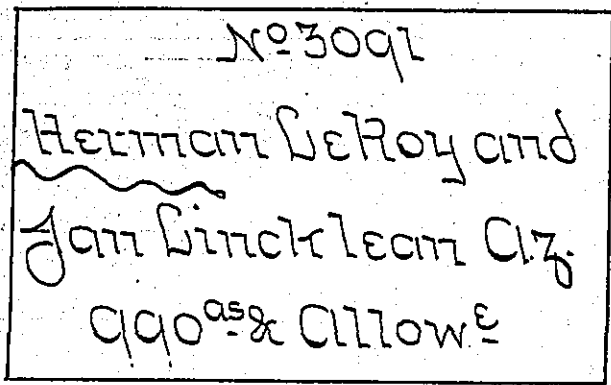 No 3091
Herman LeRoy and
Jan Lincklean A.z.
990 as & Allow e